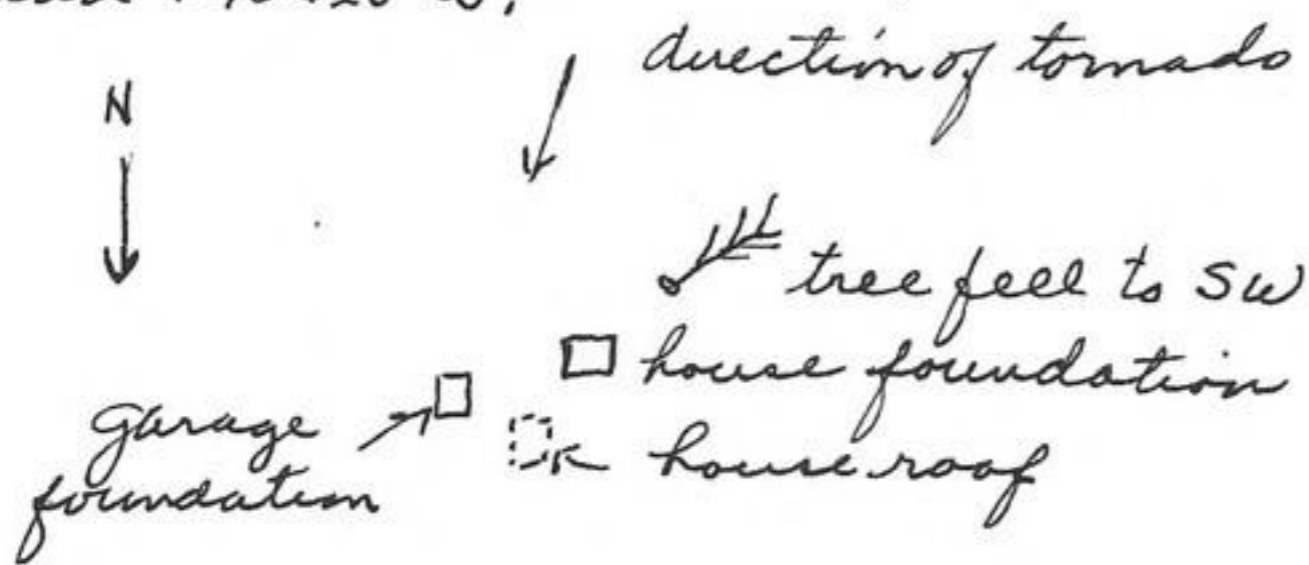 direction of tornado
N
tree fell to SW
house foundation
garage
foundation
house roof